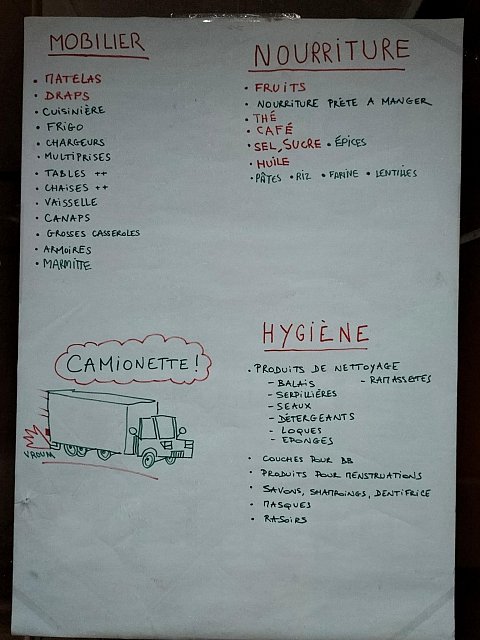 MOBILIER
• MATELAS
• DRAPS
• CUISINIÈRE
• FRIGO
• CHARGEURS
• MULTIPRISES
• TABLES ++
• CHAISES ++
• VAISSELLE
• CANAPS
• GROSSES CASSEROLES
• ARMOIRES
• MARMITTE
NOURRITURE
• FRUITS
• NOURRITURE PRÊTE A MANGER
• THÉ
• CAFÉ
• SEL, SUCRE • ÉPICES
• HUILE
• PÂTES • RIZ • FARINE • LENTILLES
CAMIONETTE !
VROUM
HYGIÈNE
• PRODUITS DE NETTOYAGE
- BALAIS - RAMASSETTES
- SERPILLIÈRES
- SEAUX
- DÉTERGEANTS
- LOQUES
- EPONGES
• COUCHES POUR BB
• PRODUITS POUR MENSTRUATIONS
• SAVONS, SHAMPOINGS, DENTIFRICE
• MASQUES
• RASOIRS